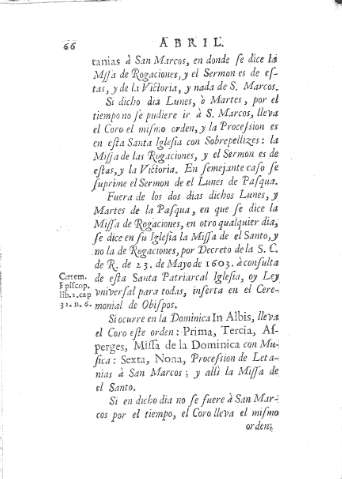 66
ABRIL.
tanias à San Marcos, en donde se dice la
Missa de Rogaciones, y el Sermon es de es-
tas, y de la Victoria, y nada de S. Marcos.
Si dicho dia Lunes, ò Martes, por el
tiempo no se pudiere ir à S. Marcos, lleva
el Coro el mismo orden, y la Procession es
en esta Santa Iglesia con Sobrepellizes: la
Missa de las Rogaciones, y el Sermon es de
estas, y la Victoria. En semejante caso se
suprime el Sermon de el Lunes de Pasqua.
Fuera de los dos dias dichos Lunes, y
Martes de la Pasqua, en que se dice la
Missa de Rogaciones, en otro qualquier dia,
se dice en su Iglesia la Missa de el Santo, y
no la de Rogaciones, por Decreto de la S. C.
de R. de 23. de Mayo de 1603. à consulta
de esta Santa Patriarcal Iglesia, oy Ley
vniversal para todas, inserta en el Cere-
monial de Obispos.
Cærem.
Episcop.
lib. 2. cap
32. n. 6.
Si ocurre en la Dominica In Albis, lleva
el Coro este orden: Prima, Tercia, As-
perges, Missa de la Dominica con Mu-
sica: Sexta, Nona, Procession de Leta-
nias à San Marcos; y alli la Missa de
el Santo.
Si en dicho dia no se fuere à San Mar-
cos por el tiempo, el Coro lleva el mismo
orden;